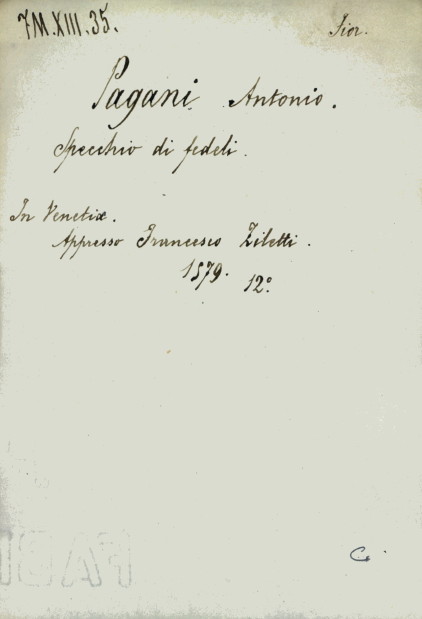 7M.XIII.35.
Fior.
Pagani Antonio.
Specchio di fedeli.
In Venetia.
Appresso Francesco Ziletti.
1579. 12º
C.